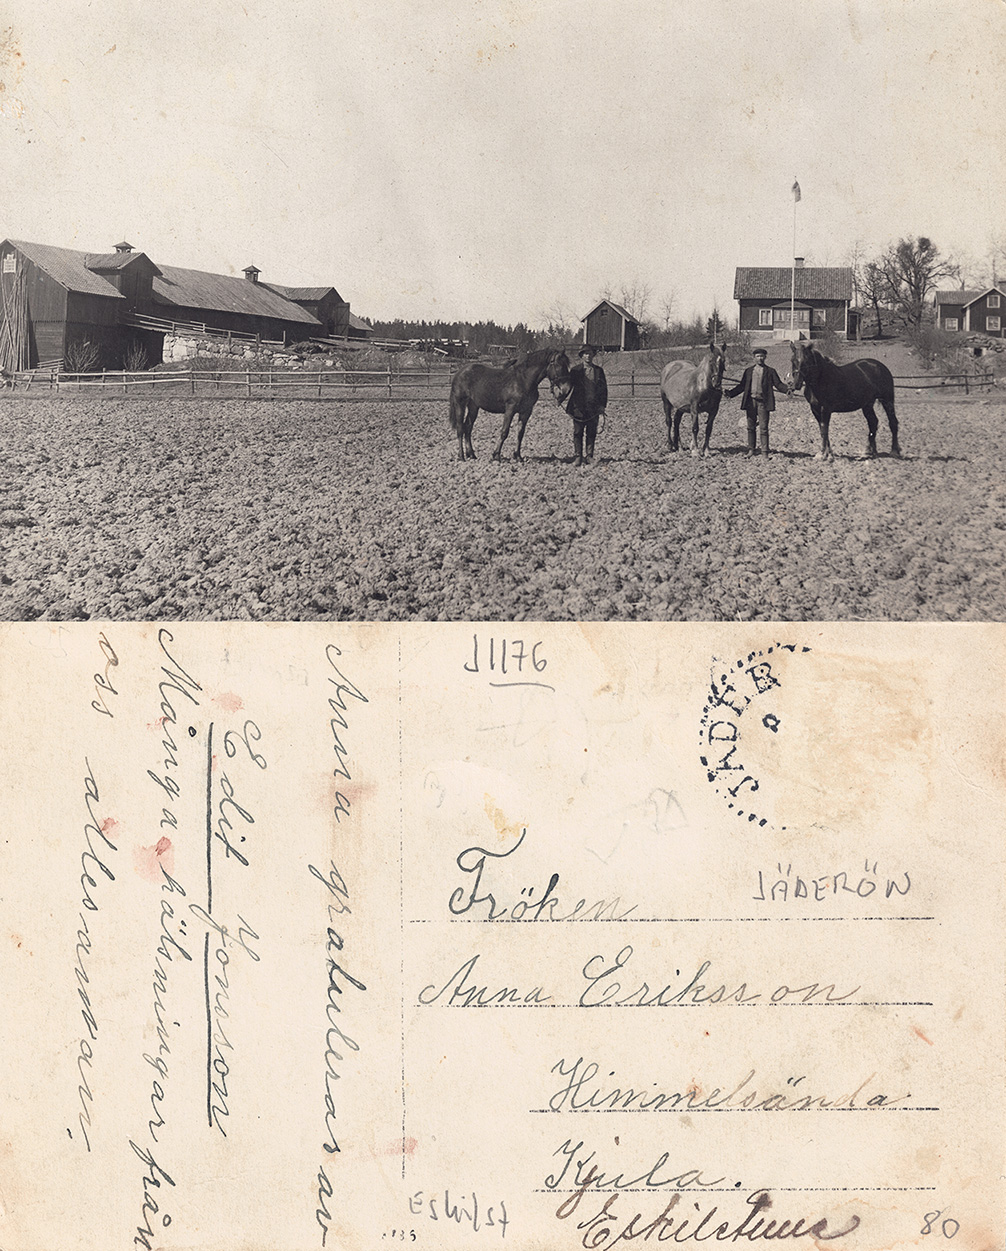 Anna gratuleras av
Edit Y Jonsson
Många hälsningar från
oss allesamman.
J1176
JÄDER
JÄDERÖN
Fröken
Anna Eriksson
Himmelsända
Kjula.
Eskilstuna
80